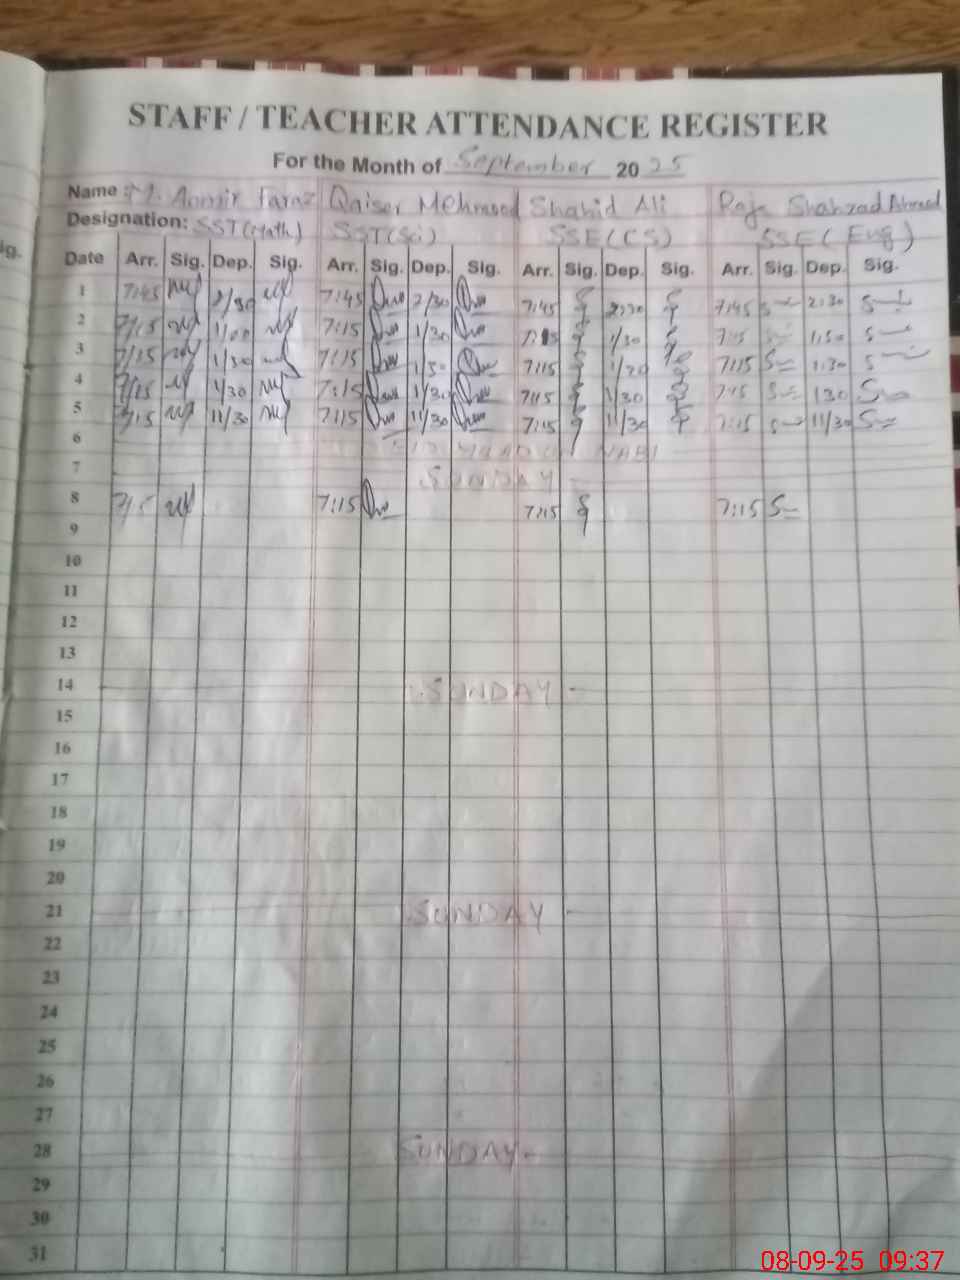 STAFF / TEACHER ATTENDANCE REGISTER
For the Month of September 2025
Name: M. Faraz Qaiser Mehmood Shahid Ali Raja Shahzad Ahmed
Designation: SST (Math) SST (Sci) SSE (CS) SSE (Eng)
ig.
Date Arr. Sig. Dep. Sig. Arr. Sig. Dep. Sig. Arr. Sig. Dep. Sig. Arr. Sig. Dep. Sig.
1 7:45 2/30 7:45 2/30 7:45 2:30 7:45 2:30
2 7/15 1/00 7:15 1/30 7:15 1/30 7:15 1:30
3 7/15 1/30 7:15 1/30 7:15 1/30 7:15 1:30
4 7/15 1/30 7:15 1/30 7:15 1/30 7:15 130
5 7/15 11/30 7:15 11/30 7:15 11/30 7:15 11/30
6 NABI
7 SUNDAY -
8 7/15 7:15 7:15 7:15
9
10
11
12
13
14 SUNDAY -
15
16
17
18
19
20
21 SUNDAY -
22
23
24
25
26
27
28 SUNDAY -
29
30
31
08-09-25 09:37